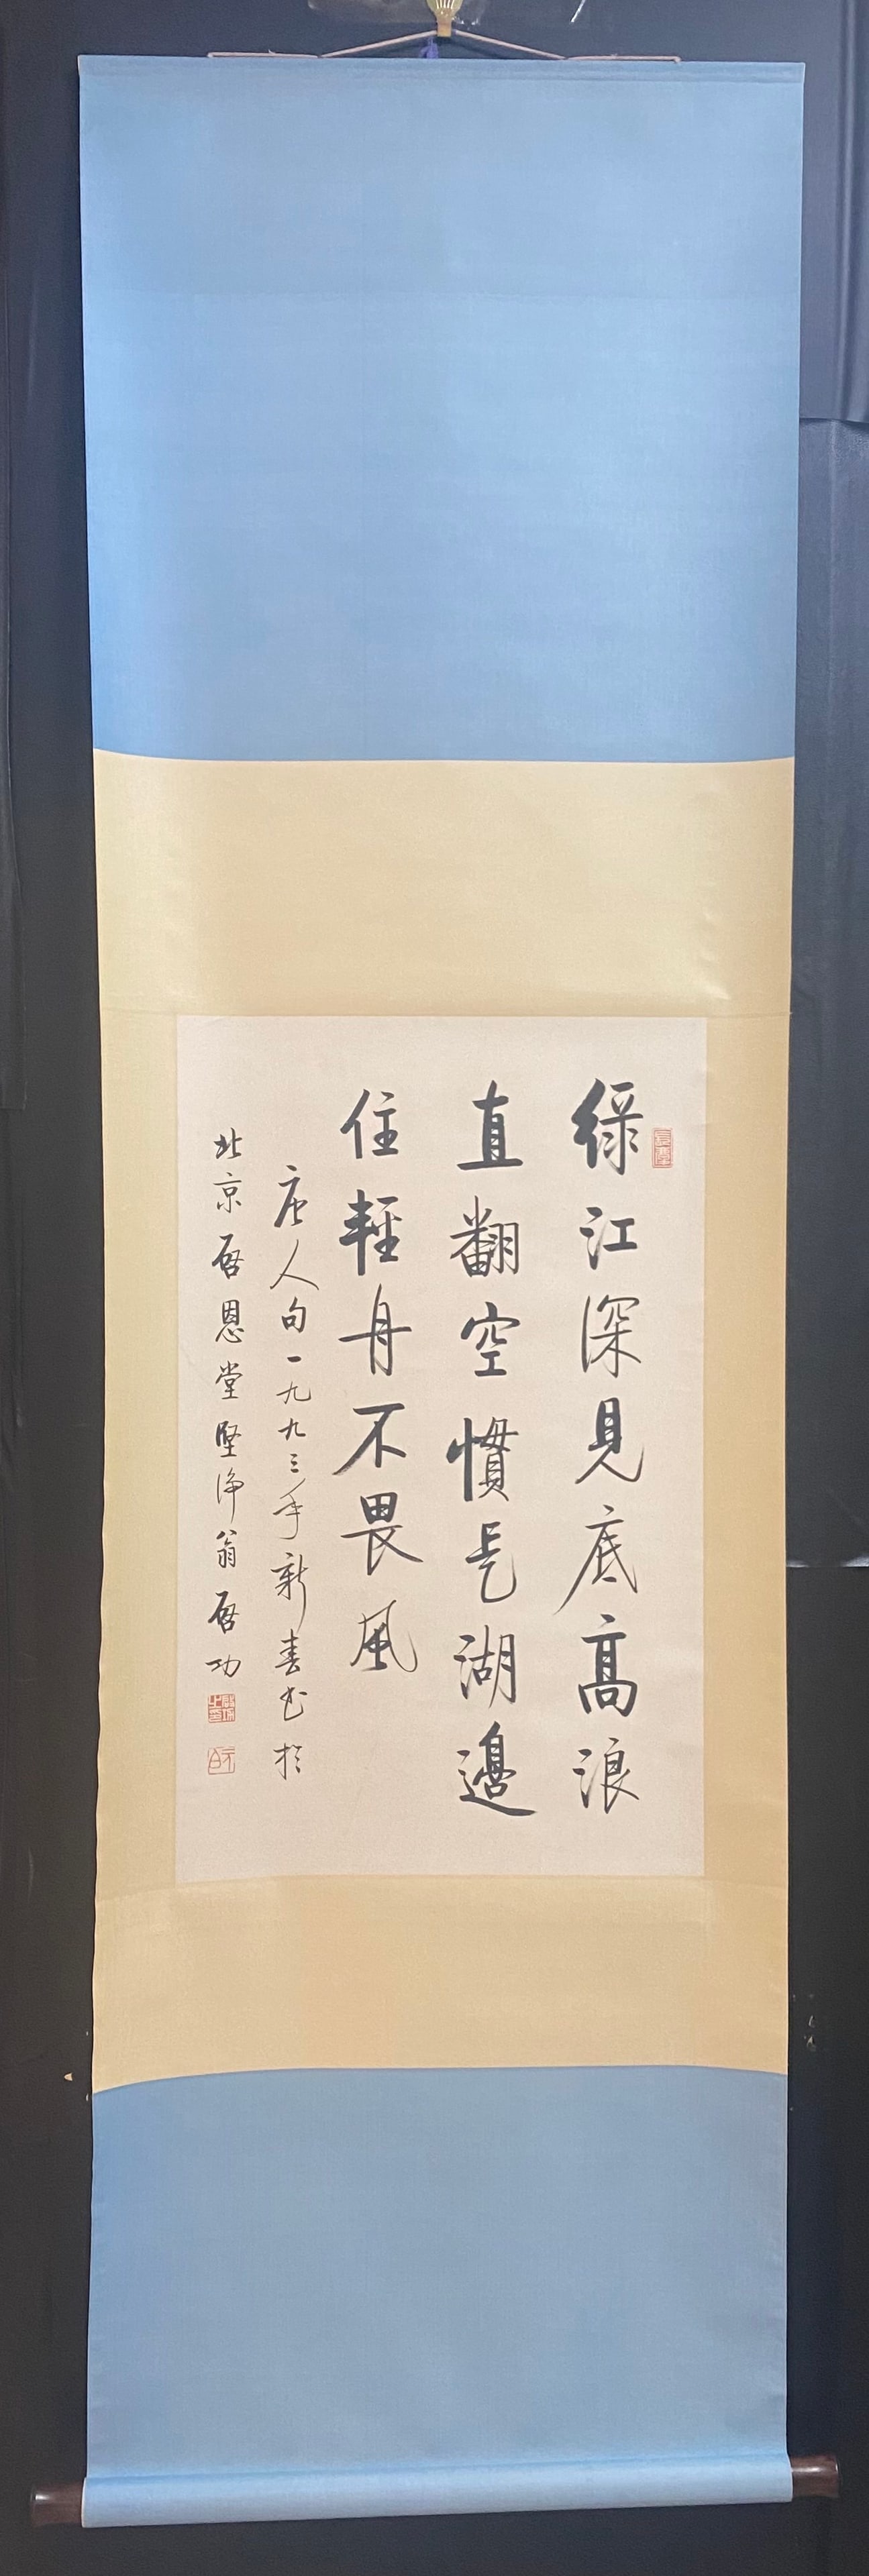 綠江深見底高浪
直翻空慣是湖邊
住輕舟不畏風
唐人句一九九三年新春書於
北京啟恩堂堅淨翁啟功